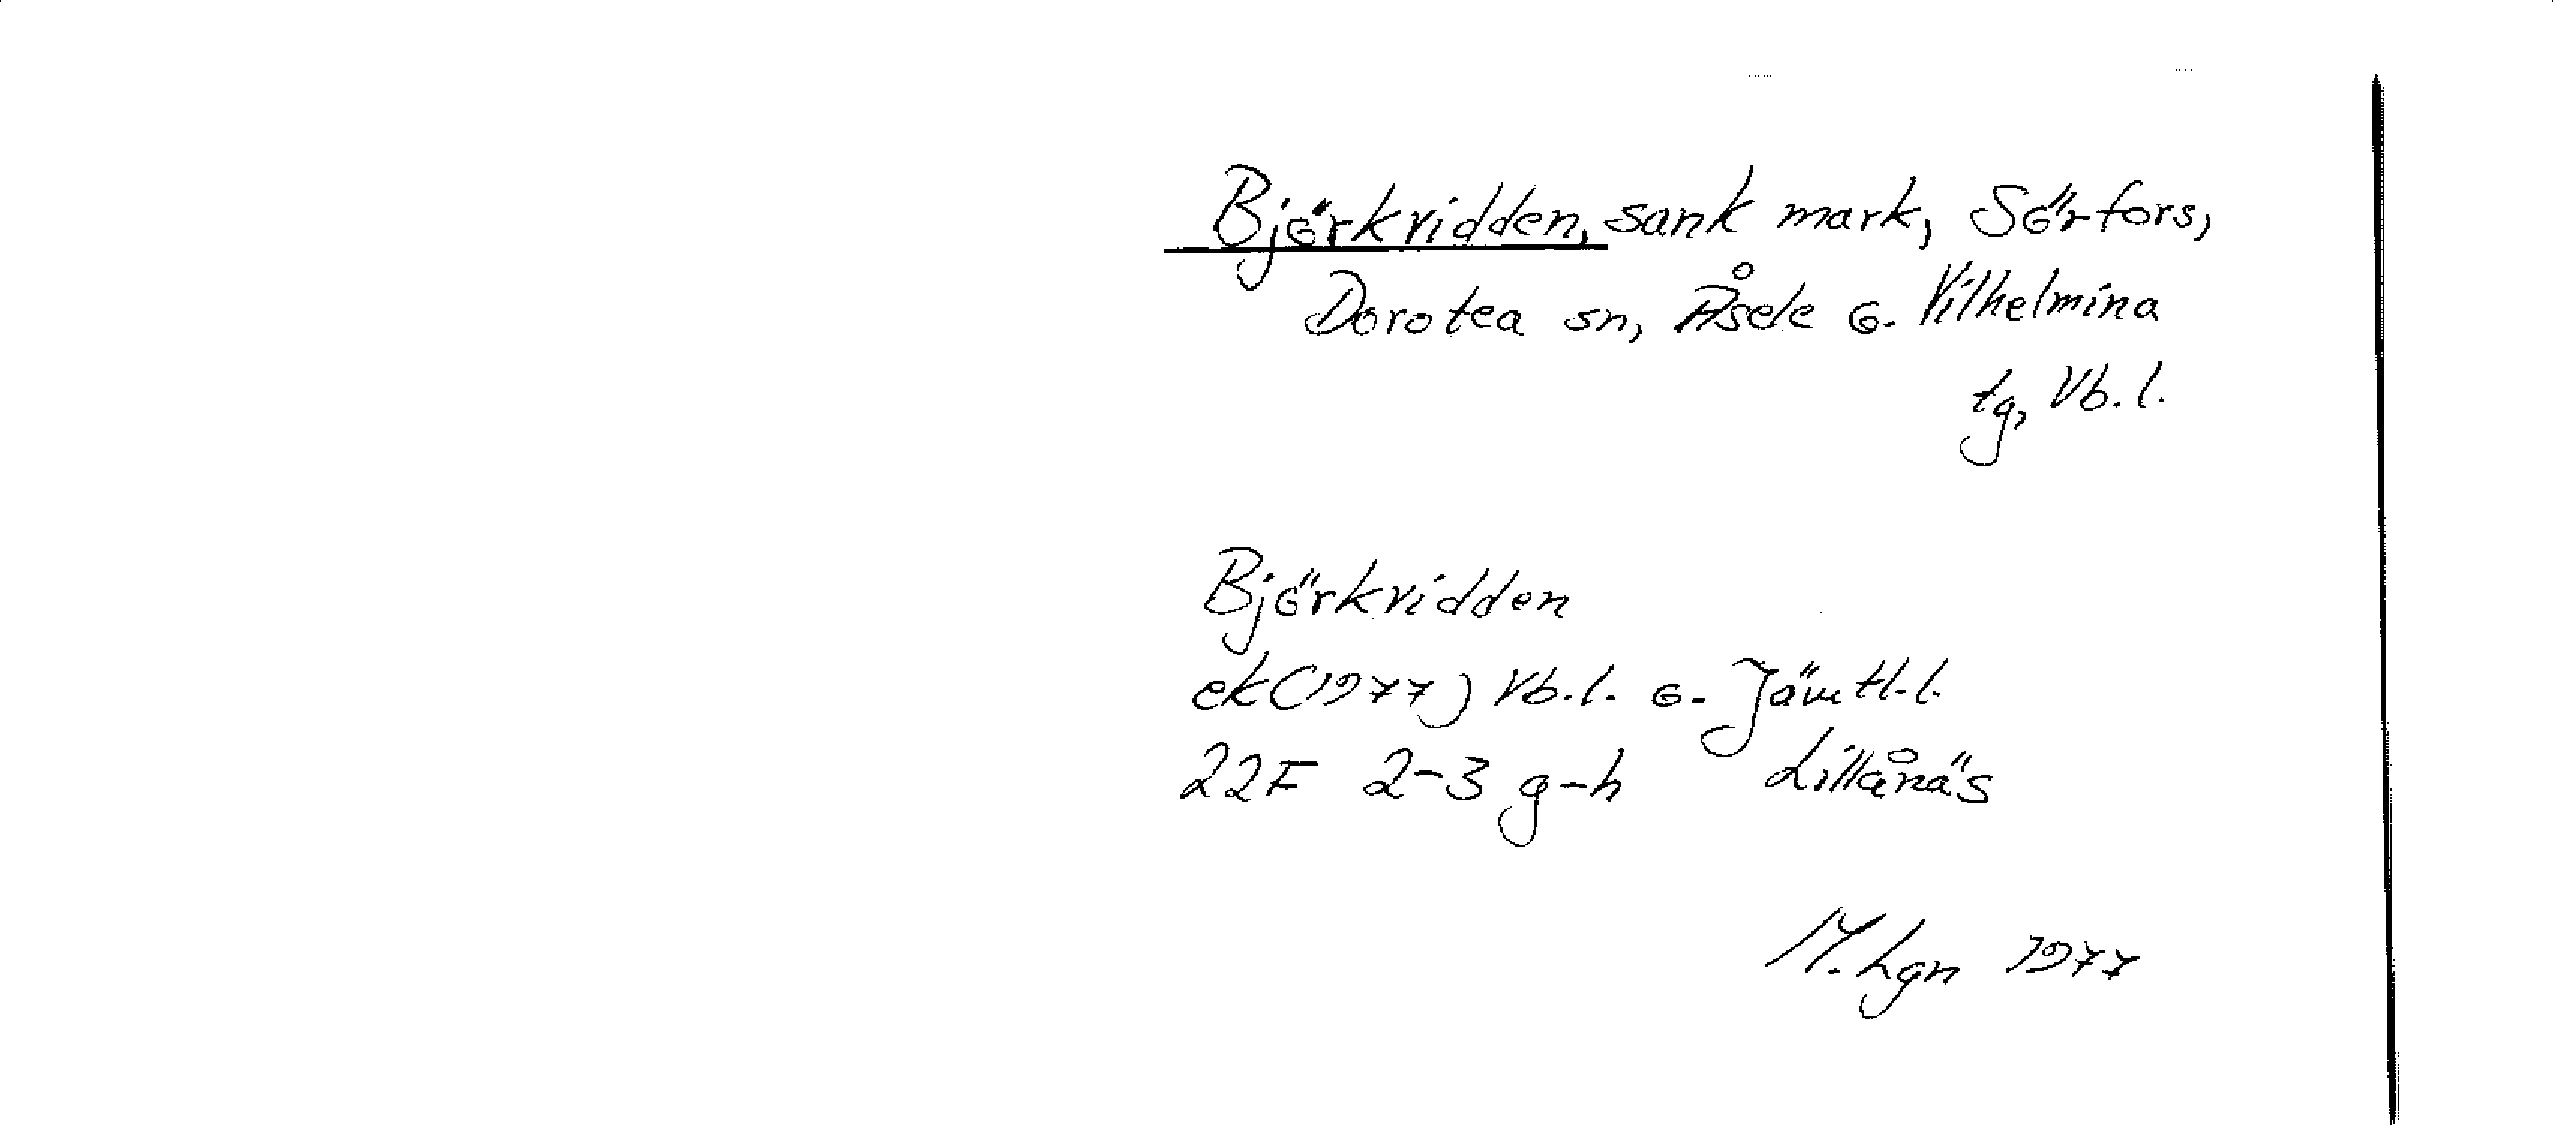 Björkvidden, sank mark, Sörfors,
Dorotea sn, Åsele o. Vilhelmina
tg, Vb. l.
Björkvidden
ek (1977) Vb. l. o. Jämtl. l.
22F 2-3 g-h Lillånäs
M. Lgn 1977